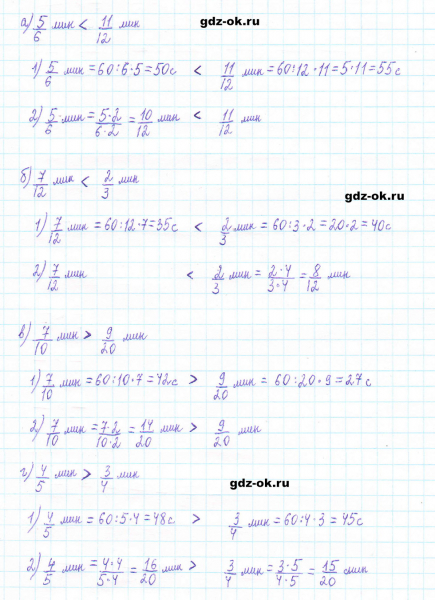 gdz-ok.ru
а) 5/6 мин < 11/12 мин
1) 5/6 мин = 60:6·5=50с < 11/12 мин = 60:12·11=5·11=55с
2) 5/6 мин = 5·2/6·2 = 10/12 мин < 11/12 мин
б) 7/12 мин < 2/3 мин
gdz-ok.ru
1) 7/12 мин = 60:12·7=35с < 2/3 мин = 60:3·2=20·2=40с
2) 7/12 мин < 2/3 мин = 2·4/3·4 = 8/12 мин
в) 7/10 мин > 9/20 мин
gdz-ok.ru
1) 7/10 мин = 60:10·7=42с > 9/20 мин = 60:20·9=27с
2) 7/10 мин = 7·2/10·2 = 14/20 мин > 9/20 мин
г) 4/5 мин > 3/4 мин
gdz-ok.ru
1) 4/5 мин = 60:5·4=48с > 3/4 мин = 60:4·3=45с
2) 4/5 мин = 4·4/5·4 = 16/20 мин > 3/4 мин = 3·5/4·5 = 15/20 мин